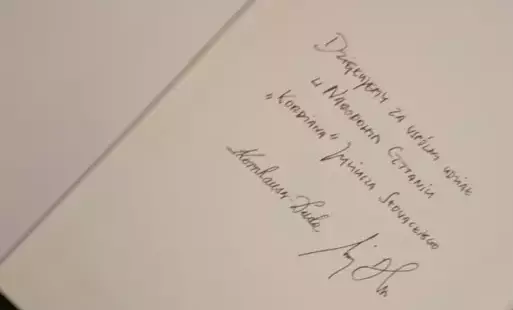 Dziękujemy za wspólny udział
w Narodowym Czytaniu
"Kordiana" Juliusza Słowackiego
Kornhauser-Duda